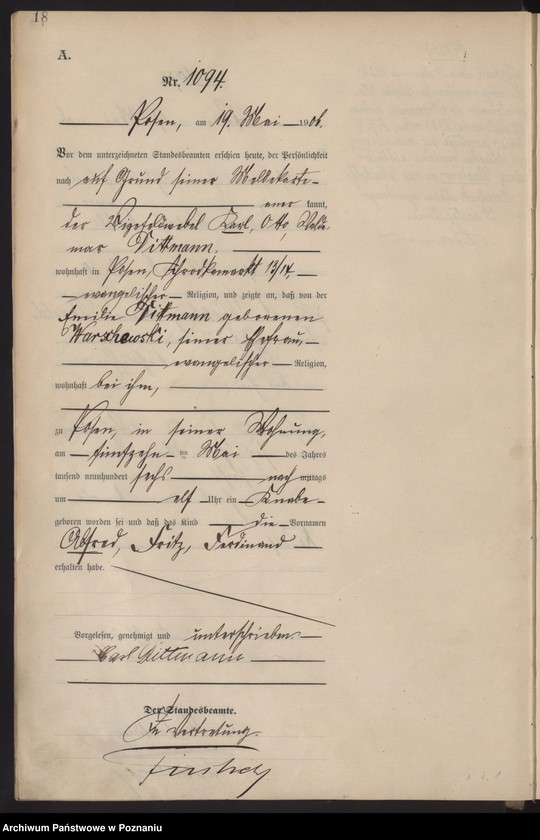 18
A.
Nr. 1094.
Posen, am 19. Mai 1906.
Vor dem unterzeichneten Standesbeamten erschien heute, der Persönlichkeit
nach auf Grund seiner Meldekarte
aner kannt,
der Vizefeldwebel Karl, Otto, Walde-
mar Dittmann,
wohnhaft in Posen, Schrodkamarkt 13/14,
evangelischer Religion, und zeigte an, daß von der
Emilie Dittmann geborenen
Warschewski, seiner Ehefrau,
evangelischer Religion,
wohnhaft bei ihm,
zu Posen, in seiner Wohnung,
am fünfzehn ten Mai des Jahres
tausend neunhundert sechs nach mittags
um elf Uhr ein Knabe
geboren worden sei und daß das Kind die Vornamen
Alfred, Fritz, Ferdinand
erhalten habe.
Vorgelesen, genehmigt und unterschrieben
Karl Dittmann
Der Standesbeamte.
In Vertretung.
Archiwum Państwowe w Poznaniu